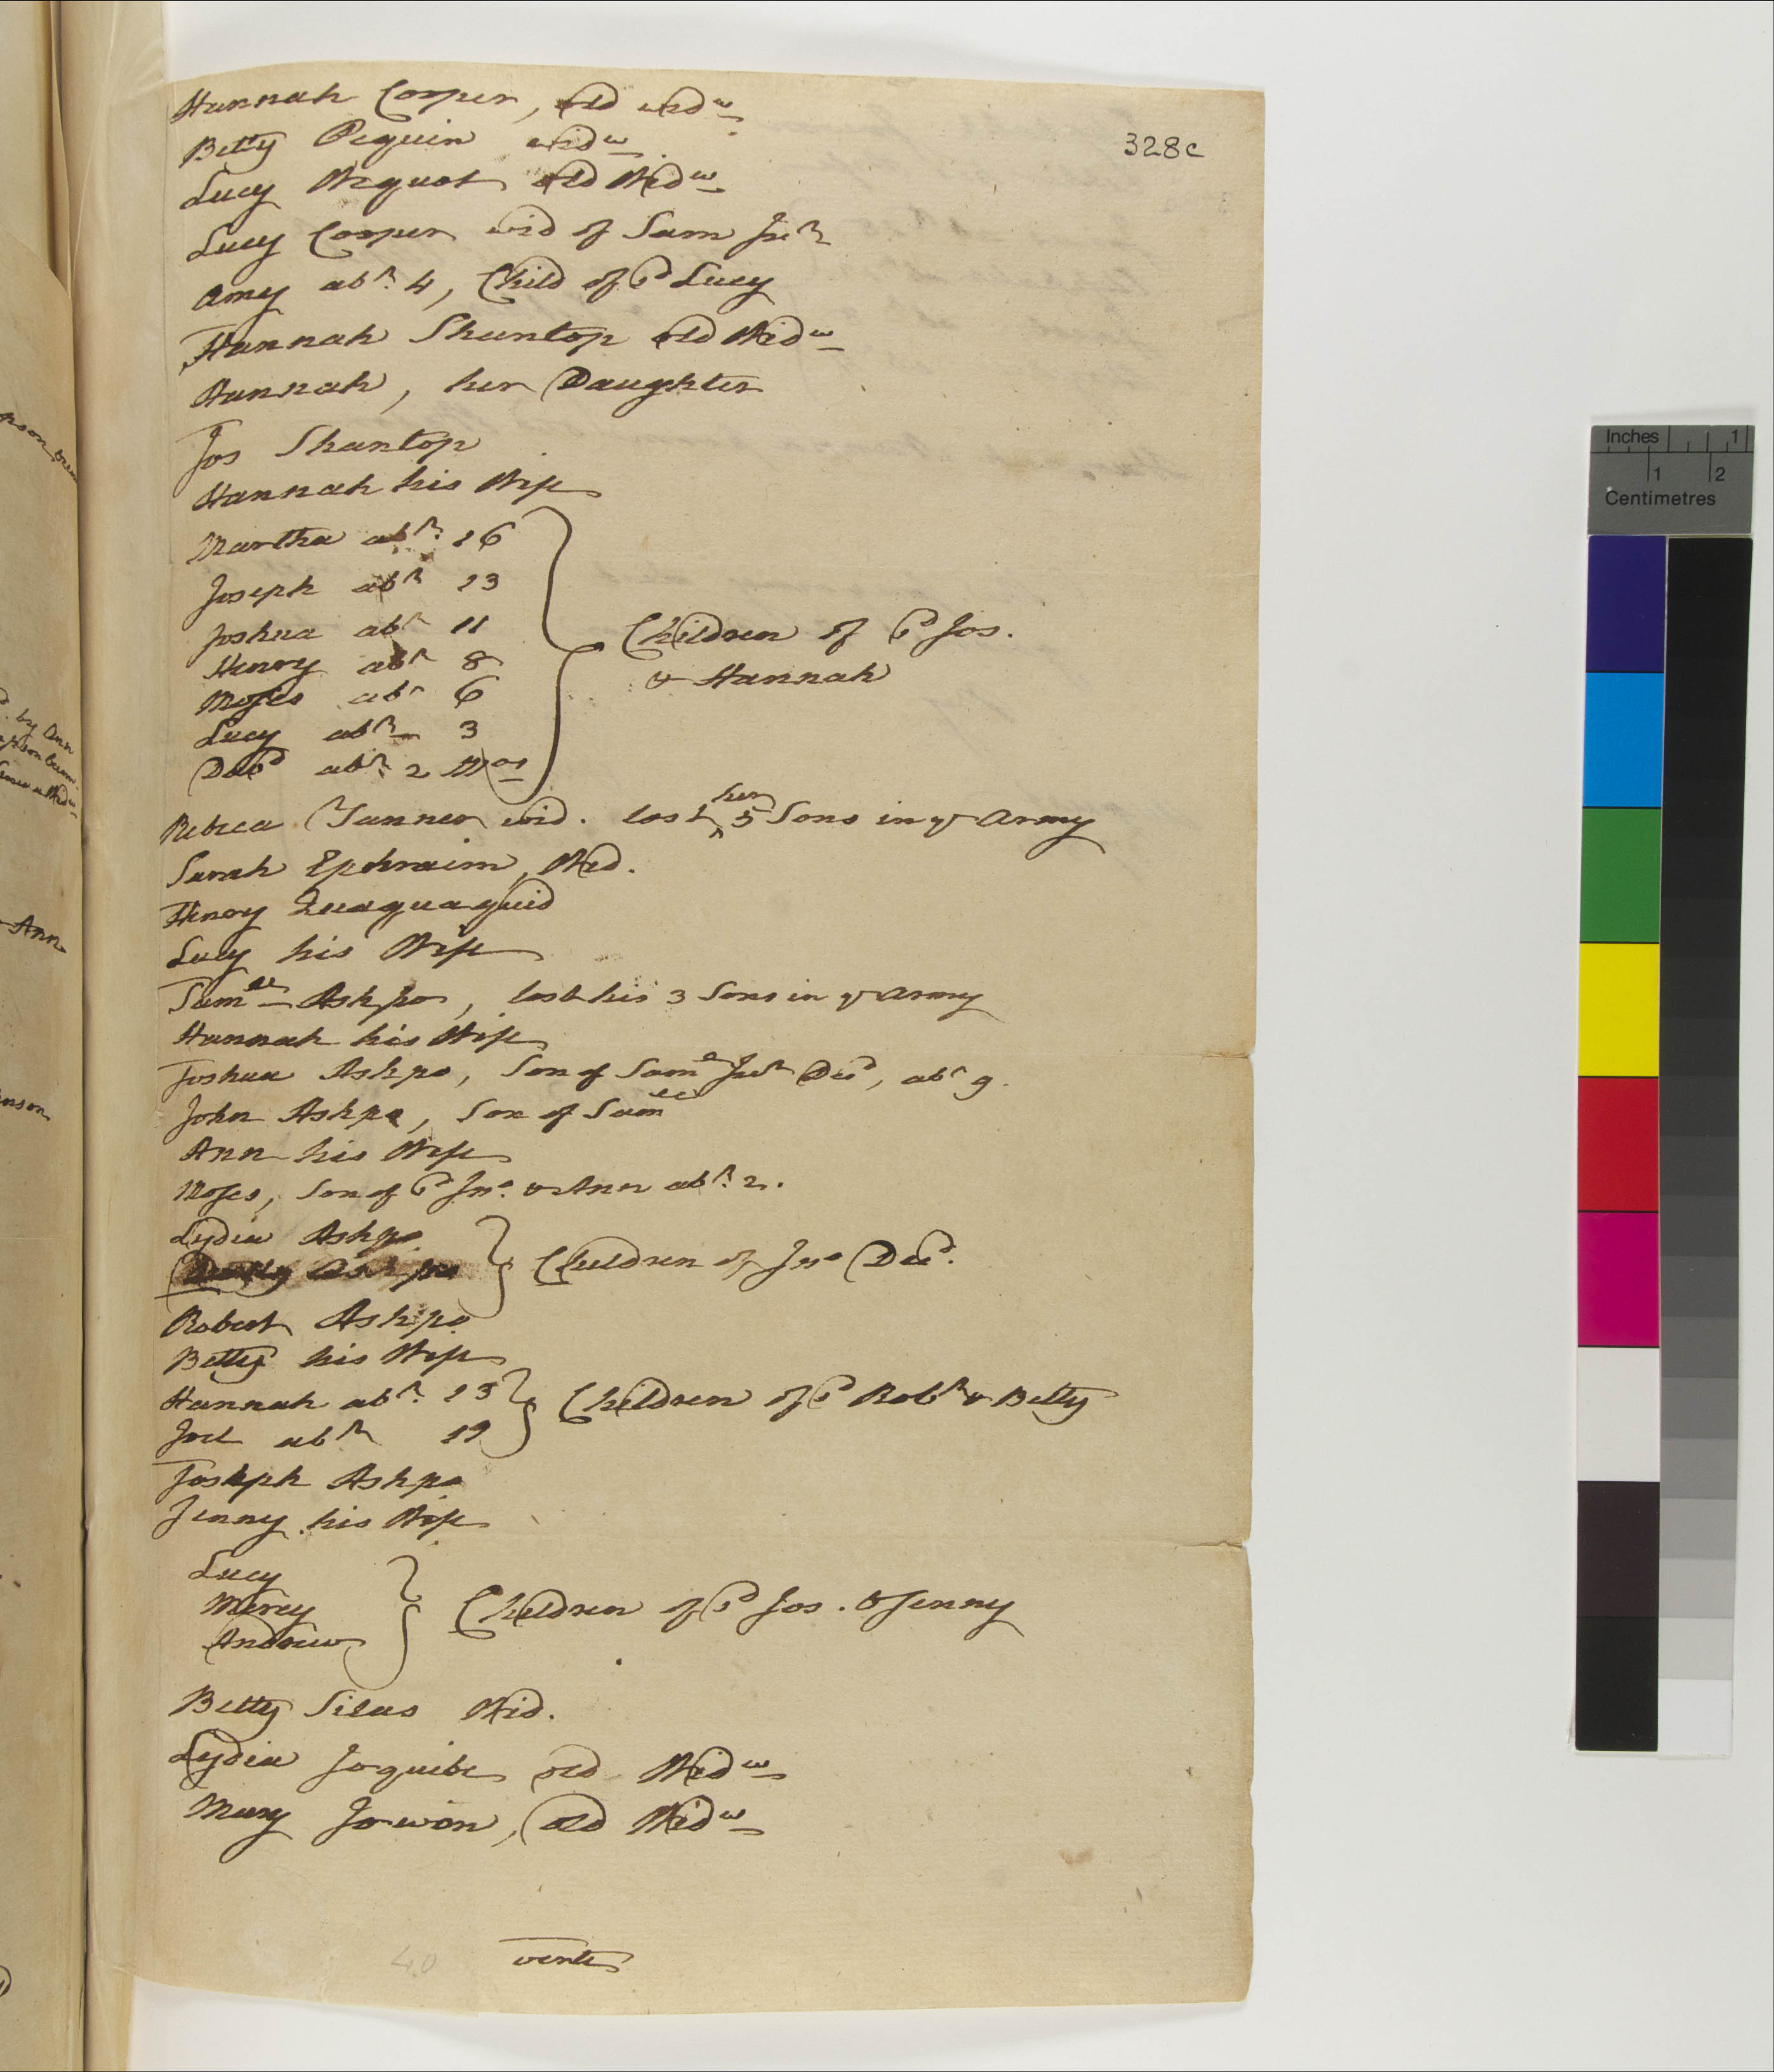 328c
Hannah Cooper, old widw
Betty Peguin widw
Lucy Wequot old Widw
Lucy Cooper wid of Sam Junr
Amy abt. 4, Child of sd Lucy
Hannah Shuntop old Widw
Hannah, her Daughter
Jos Shantop
Hannah his Wife
Martha abt. 16
Joseph abt 13
Joshua abt 11
Children of sd Jos.
Henry abt 8
& Hannah
Moses abt 6
Lucy abt 3
Davd abt. 2 Mos
Rebeca Tanner wid. lost her 5 Sons in ye Army
Sarah Ephraim, Wid.
Henry Quaquaquid
Lucy his Wife
Samll Ashpo, lost his 3 Sons in ye Army
Hannah his Wife
Joshua Ashpo, Son of Saml Junr Decd, abt 9.
John Ashpo, Son of Samll
Ann his Wife
Moses, Son of sd Jno. & Ann abt. 2.
Lydia Ashpo
Children of Jno Decd.
Robert Ashpo
Betty his Wife
Hannah abt. 13
Children of sd Robt & Betty
Joel abt 11
Joseph Ashpo
Jenny his Wife
Lucy
Mercy
Children of sd Jos. & Jenny
Andrew
Betty Silas Wid.
Lydia Joquibe old Widw
Mary Jowon, old Widw
40
verte
Inches 1
1 2
Centimetres